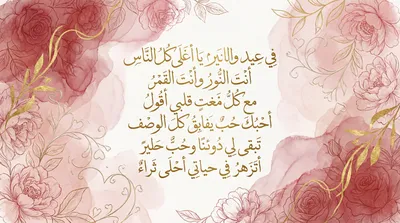 في عيد والانير يا أغلى كل الناس
أنت النور وأنت القمر
مع كل مغت قلبي أقول
أحبك حب يفايق كل الوصف
تبقى لي دوننا وحب حلير
أتزهر في حياتي أحلى ثراء